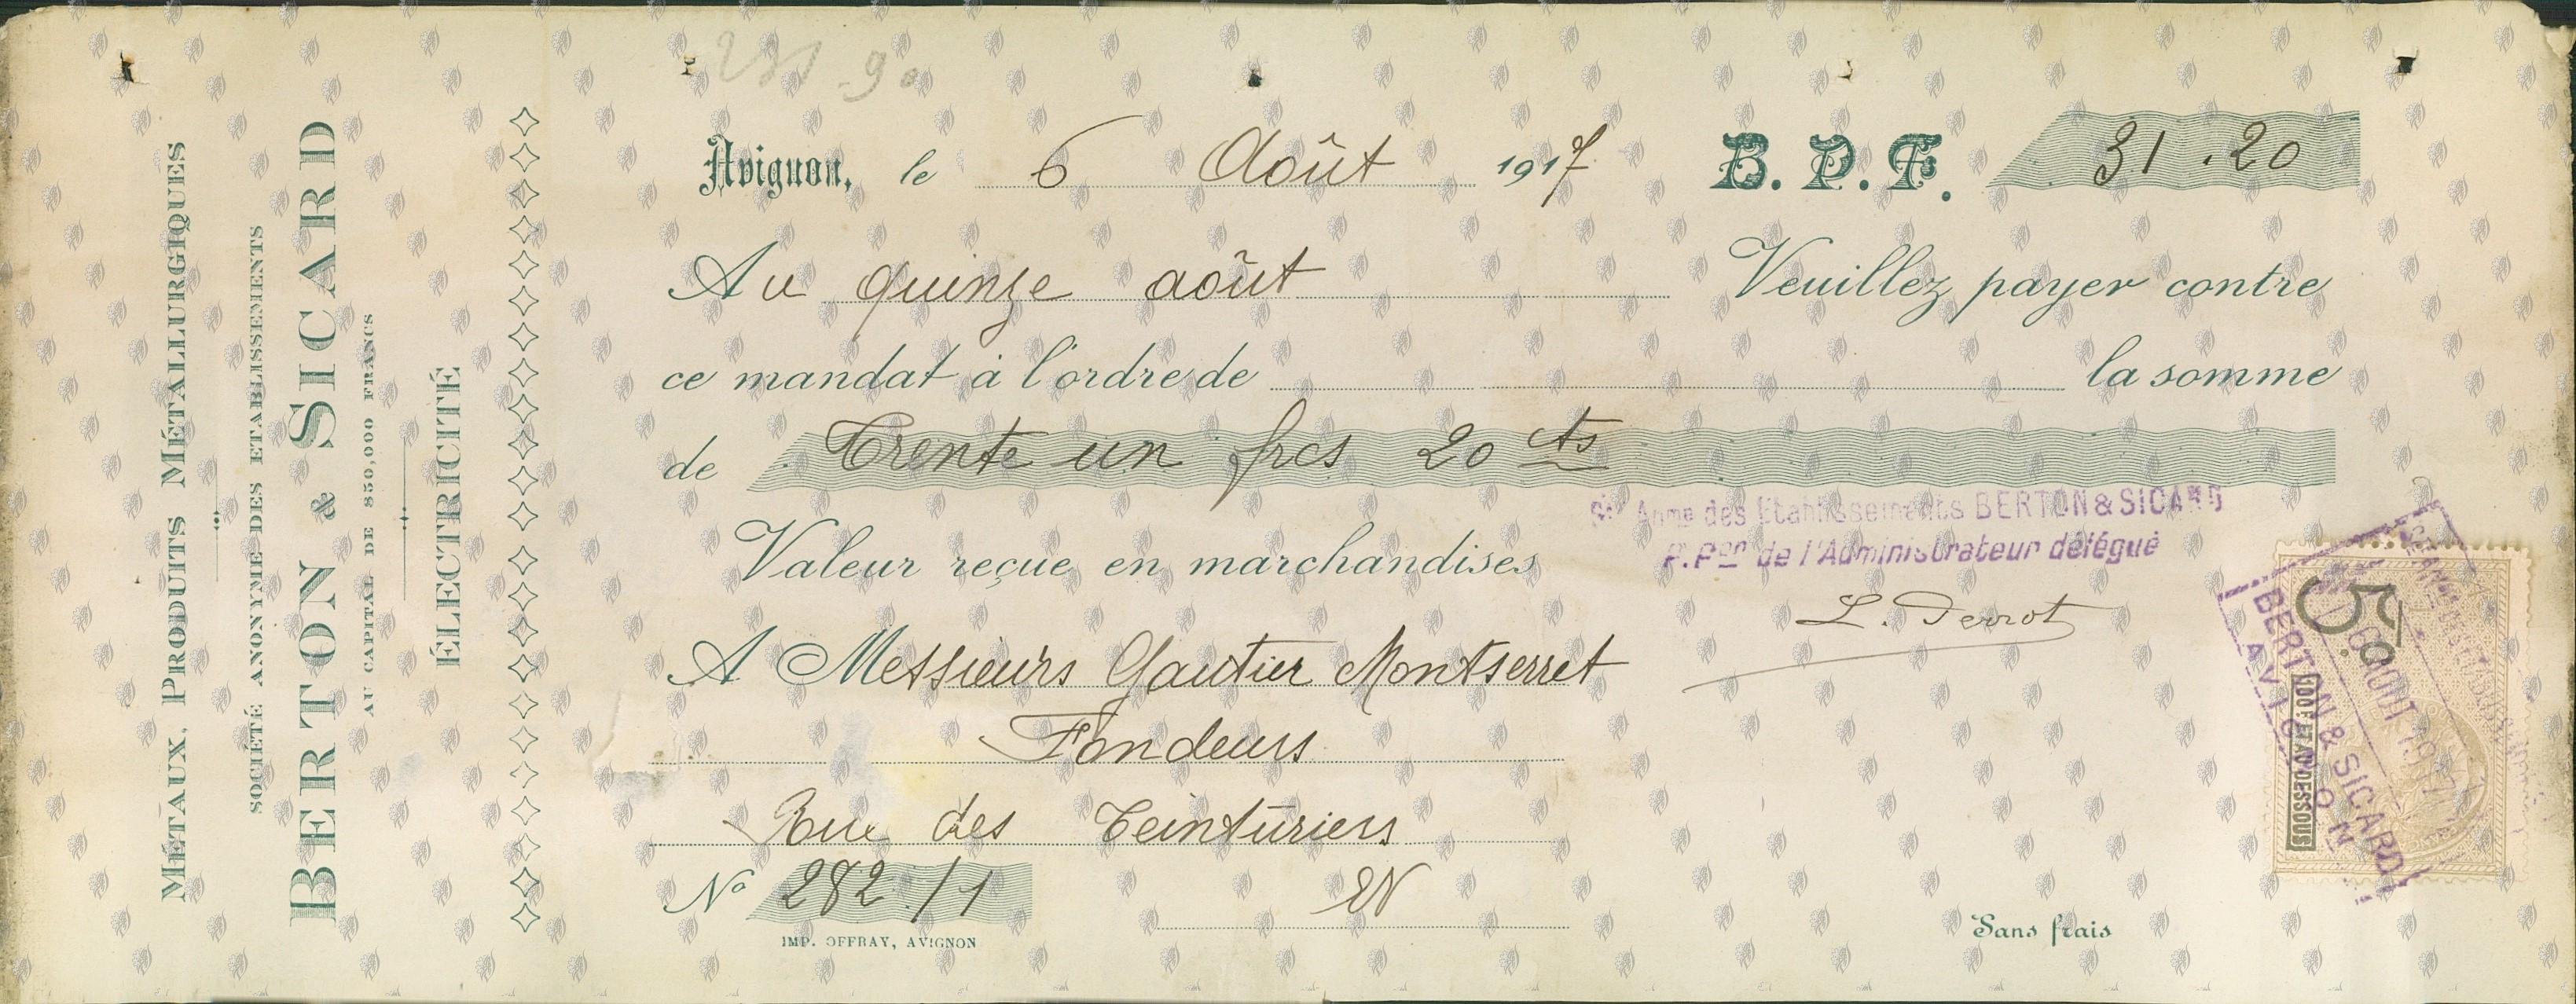 MÉTAUX, PRODUITS MÉTALLURGIQUES
SOCIÉTÉ ANONYME DES ETABLISSEMENTS
BERTON & SICARD
AU CAPITAL DE 850,000 FRANCS
ÉLECTRICITÉ
Avignon, le 6 Août 1917 B. P. F. 31.20
Au quinze août Veuillez payer contre
ce mandat à l'ordre de la somme
de Trente un frcs 20 cts
Sté Anme des Etablissements BERTON & SICARD
P. Pon de l'Administrateur délégué
Valeur reçue en marchandises
L. Perrot
A Messieurs Gautier Montserret
Fondeurs
Rue des Teinturiers
No 282/1 EV
IMP. OFFRAY, AVIGNON
Sans frais
5c
100 F ET AU DESSOUS
BERTON & SICARD
6 AOUT 1917
AVIGNON